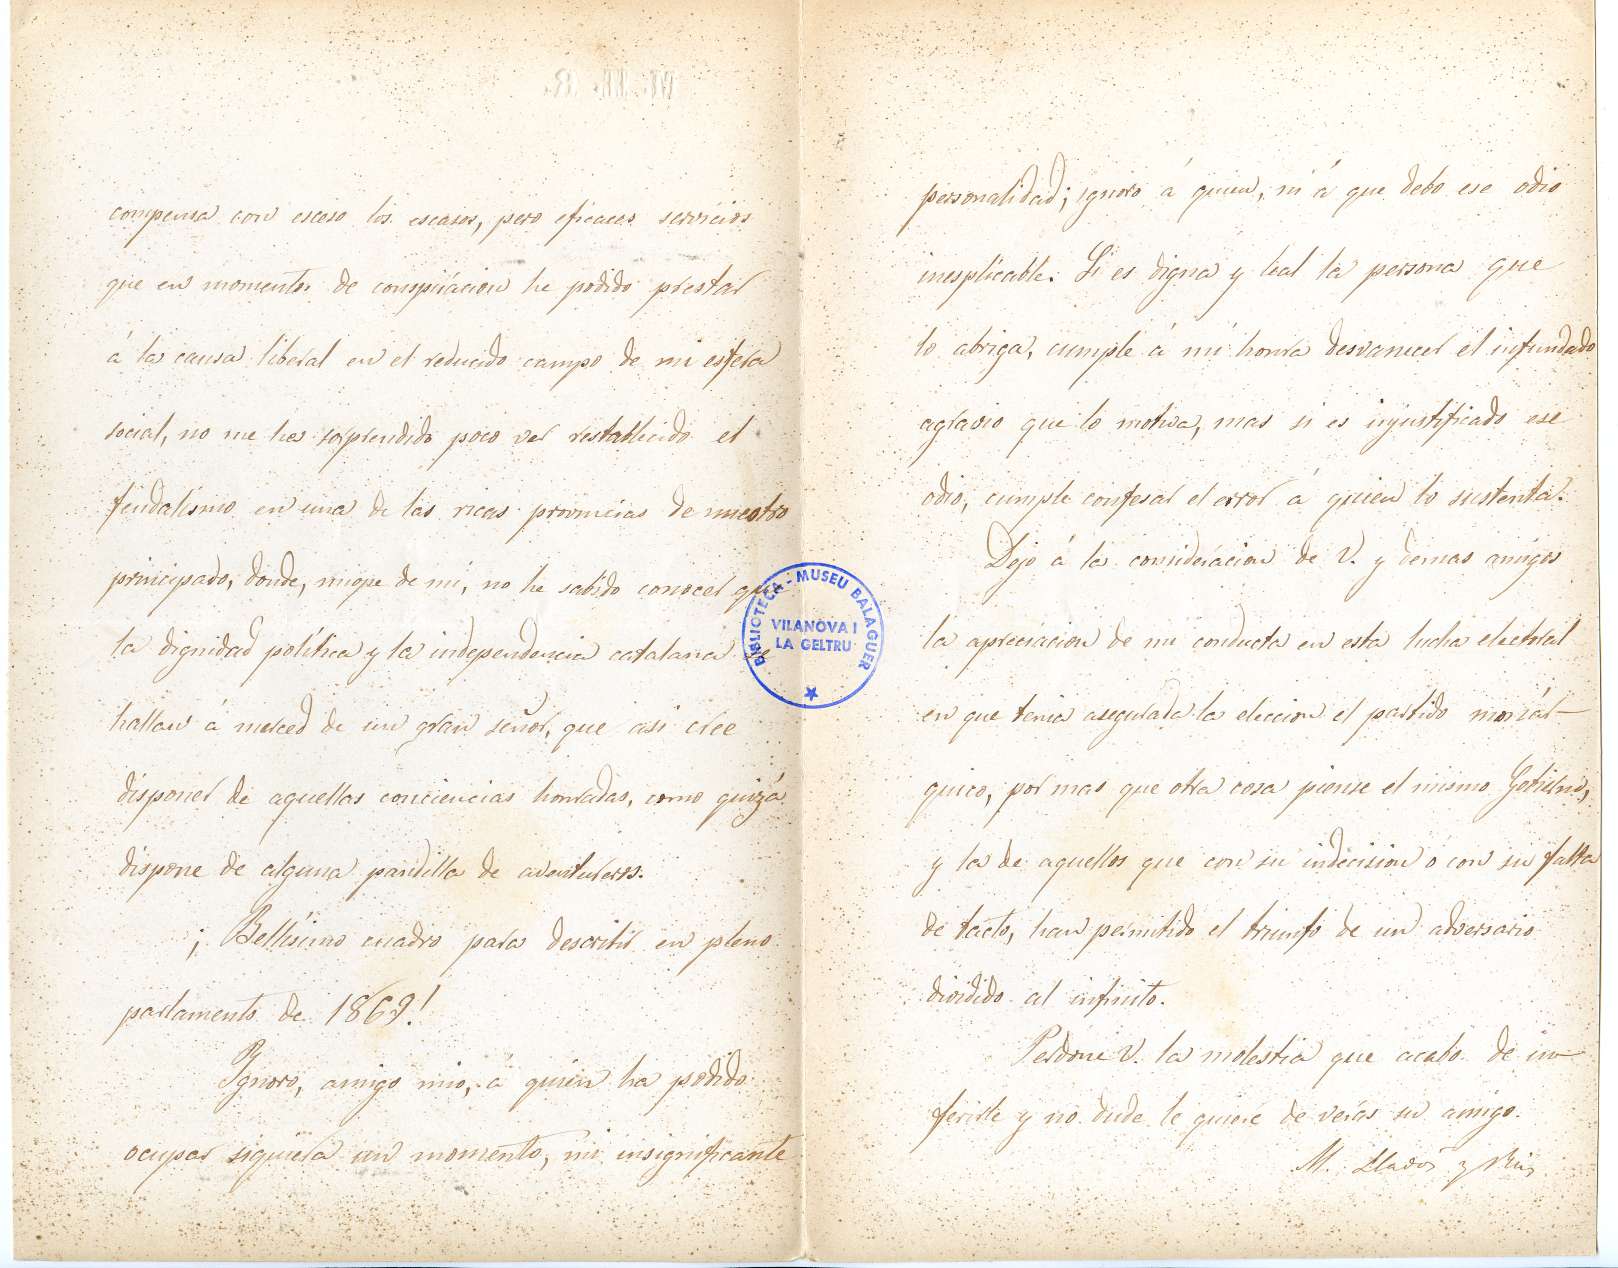 compensa con esceso los escasos, pero eficaces servicios
que en momentos de conspiracion he podido prestar
á la causa liberal en el reducido campo de mi esfera
social, no me ha sorprendido poco ver restablecido el
feudalismo en una de las ricas provincias de nuestro
principado, donde, miope de mí, no he sabido conocer que
la dignidad política y la independencia catalana se
hallan á merced de un gran señor, que asi cree
disponer de aquellas conciencias honradas, como quizá
dispone de alguna pandilla de aventureros.
¡Bellísimo cuadro para describir en pleno
parlamento de 1869!
Ignoro, amigo mio, á quien ha podido
ocupar siquiera un momento, mi insignificante
personalidad; ignoro á quien, ni á que debo ese odio
inesplicable. Si es digna y leal la persona que
lo abriga, cumple á mi honra desvanecer el infundado
agravio que lo motiva, mas si es injustificado ese
odio, cumple confesar el error á quien lo sustenta.
Dejo á la consideracion de V. y demas amigos
la apreciacion de mi conducta en esta lucha electoral
en que tenia asegurada la eleccion el partido monár-
quico, por mas que otra cosa piense el mismo Gobierno,
y la de aquellos que con su indecision ó con su falta
de tacto, han permitido el triunfo de un adversario
dividido al infinito.
Perdone V. la molestia que acabo de in-
ferirle y no dude le quiere de veras su amigo.
M. Lladós y Rius
BIBLIOTECA - MUSEU BALAGUER
VILANOVA I
LA GELTRU